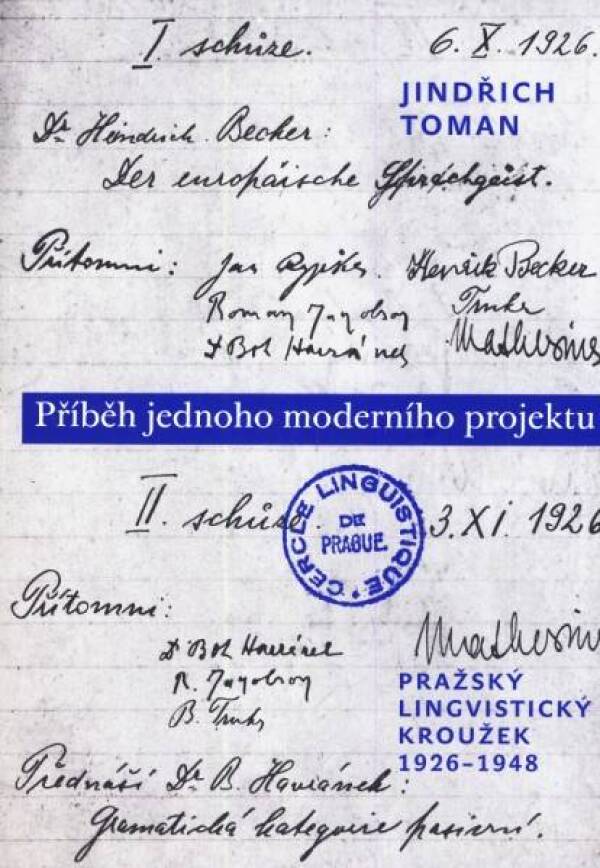 I. schůze. 6. X. 1926.
JINDŘICH
TOMAN
Dr Heindrich Becker:
Der europäische Sprachgeist.
Přítomni: Jan Rypka. Henrik Becker
Roman Jakobson Trnka
Dr Boh Havránek Mathesius
Příběh jednoho moderního projektu
II. schůze. 3. XI. 1926
CERCLE LINGUISTIQUE
DE
PRAGUE
Přítomni:
Dr Boh Havránek Mathesius
R. Jakobson
B. Trnka
PRAŽSKÝ
LINGVISTICKÝ
KROUŽEK
1926–1948
Přednáší Dr. B. Havránek:
Gramatická kategorie pasivní.